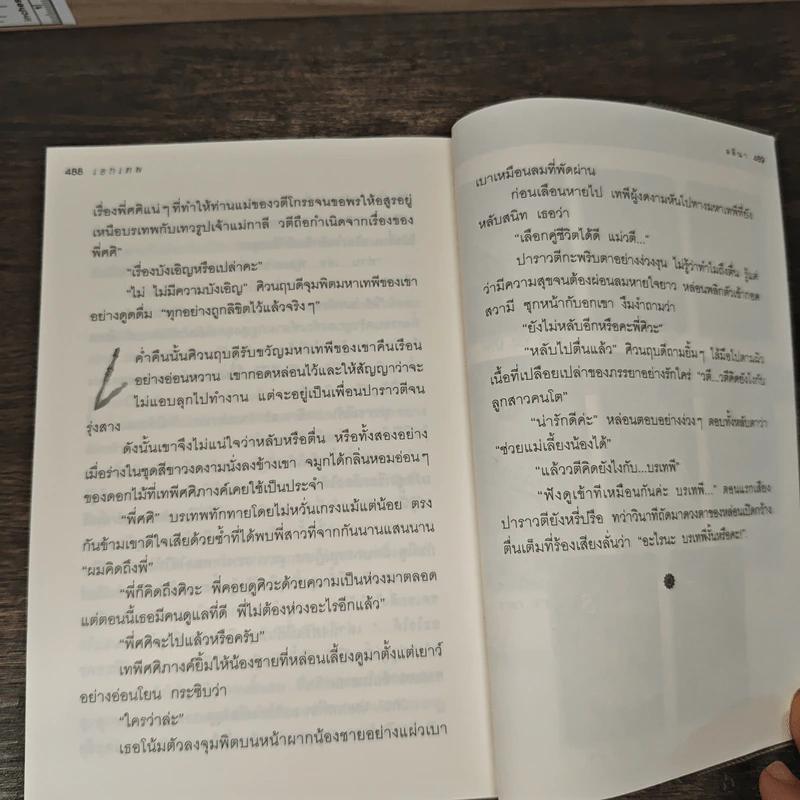 488 เอกเทพ
เรื่องพี่ศศิแน่ๆ ที่ทำให้ท่านแม่ของวตีโกรธจนขอพรให้อสูรอยู่
เหนือบรเทพกับเทวรูปเจ้าแม่กาลี วตีถือกำเนิดจากเรื่องของ
พี่ศศิ”
“เรื่องบังเอิญหรือเปล่าคะ”
“ไม่ ไม่มีความบังเอิญ” ศิวนฤบดีจุมพิตมหาเทพีของเขา
อย่างดูดดื่ม “ทุกอย่างถูกลิขิตไว้แล้วจริงๆ”
ค่ำคืนนั้นศิวนฤบดีรับขวัญมหาเทพีของเขาคืนเรือน
อย่างอ่อนหวาน เขากอดหล่อนไว้และให้สัญญาว่าจะ
ไม่แอบลุกไปทำงาน แต่จะอยู่เป็นเพื่อนปาราวตีจน
รุ่งสาง
ดังนั้นเขาจึงไม่แน่ใจว่าหลับหรือตื่น หรือทั้งสองอย่าง
เมื่อร่างในชุดสีขาวงดงามนั่งลงข้างเขา จมูกได้กลิ่นหอมอ่อนๆ
ของดอกไม้ที่เทพีศศิภางค์เคยใช้เป็นประจำ
“พี่ศศิ” บรเทพทักทายโดยไม่หวั่นเกรงแม้แต่น้อย ตรง
กันข้ามเขาดีใจเสียด้วยซ้ำที่ได้พบพี่สาวที่จากกันนานแสนนาน
“ผมคิดถึงพี่”
“พี่ก็คิดถึงศิวะ พี่คอยดูศิวะด้วยความเป็นห่วงมาตลอด
แต่ตอนนี้เธอมีคนดูแลที่ดี พี่ไม่ต้องห่วงอะไรอีกแล้ว”
“พี่ศศิจะไปแล้วหรือครับ”
เทพีศศิภางค์ยิ้มให้น้องชายที่หล่อนเลี้ยงดูมาตั้งแต่เยาว์
อย่างอ่อนโยน กระซิบว่า
“ใครว่าล่ะ”
เธอโน้มตัวลงจุมพิตบนหน้าผากน้องชายอย่างแผ่วเบา
489
เบาเหมือนลมที่พัดผ่าน
ก่อนเลือนหายไป เทพีผู้งดงามหันไปทางมหาเทพีที่ยัง
หลับสนิท เธอว่า
“เลือกคู่ชีวิตได้ดี แม่วตี...”
ปาราวตีกะพริบตาอย่างง่วงงุน ไม่รู้ว่าทำไมถึงตื่น รู้แต่
ว่ามีความสุขจนต้องผ่อนลมหายใจยาว หล่อนพลิกตัวเข้ากอด
สวามี ซุกหน้ากับอกเขา งึมงำถามว่า
“ยังไม่หลับอีกหรือคะพี่ศิวะ”
“หลับไปตื่นแล้ว” ศิวนฤบดีถามยิ้มๆ ไล้มือไปตามผิว
เนื้อที่เปลือยเปล่าของภรรยาอย่างรักใคร่ “วตี...วตีคิดยังไงกับ
ลูกสาวคนโต”
“น่ารักดีค่ะ” หล่อนตอบอย่างง่วงๆ ตอบทั้งหลับตาว่า
“ช่วยแม่เลี้ยงน้องได้”
“แล้ววตีคิดยังไงกับ...บรเทพี”
“ฟังดูเข้าทีเหมือนกันค่ะ บรเทพี...” ตอนแรกเสียง
ปาราวตียังหรี่ปรือ ทว่าวินาทีถัดมาดวงตาของหล่อนเปิดกว้าง
ตื่นเต็มที่ร้องเสียงลั่นว่า “อะไรนะ บรเทพีงั้นหรือคะ!”